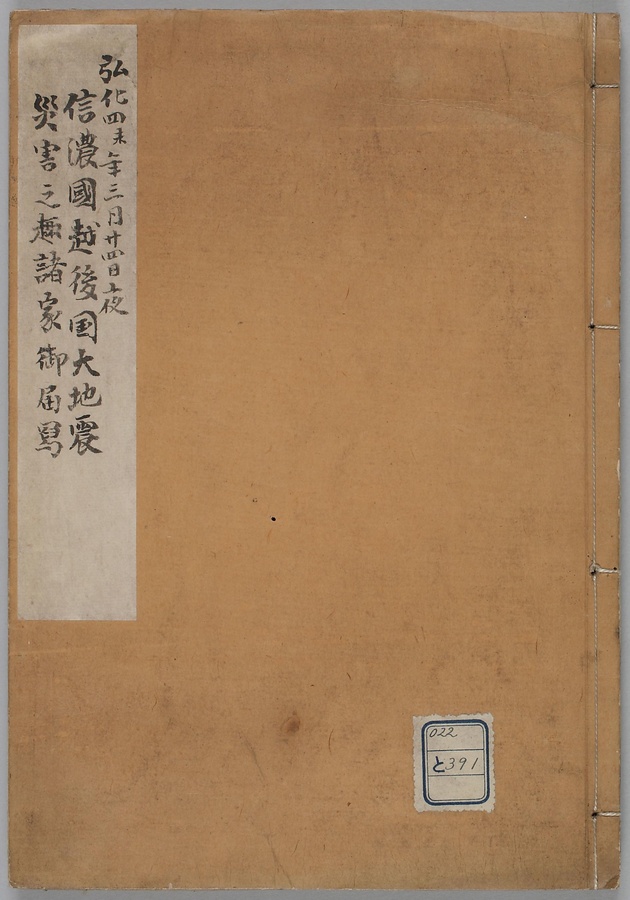 弘化四未年三月廿四日夜
信濃國越後国大地震
災害之趣諸家御届写
022
と391